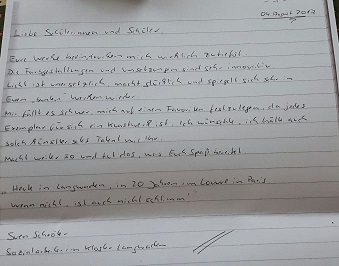 04. August 2013
Liebe Schülerinnen und Schüler,
Eure Werke beeindrucken mich wirklich zutiefst.
Die Farbgestaltungen und Umsetzungen sind sehr innovativ
Licht ist unersetzlich, macht glücklich und spiegelt sich sehr in
Euren "bunten" Werken wieder.
Mir fällt es schwer mich auf einen Favoriten festzulegen, da jedes
Exemplar für sich ein Kunstwerk ist. Ich wünschte, ich hätte auch
solch künstlerisches Talent wie Ihr.
Macht weiter so und tut das, was Euch Spaß bereitet.
"Heute in Langwaden, in 20 Jahren im Louvre in Paris
wenn nicht, ist auch nicht schlimm!"
Sven Schröder
Sozialarbeiter im Kloster Langwaden